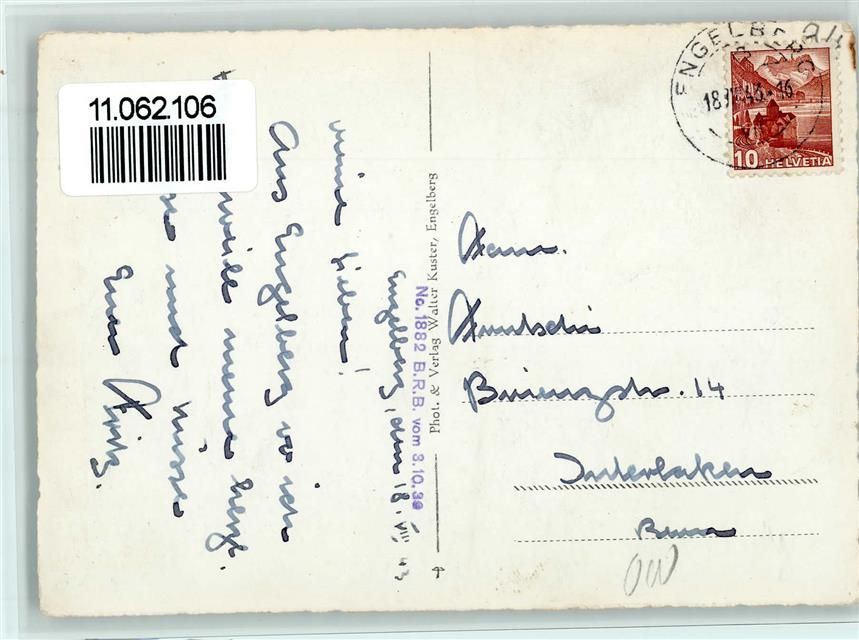 11.062.106
Engelberg, den 18. VIII. 43
meine Lieben!
Aus Engelberg wo ich
weile meine herzl.
und Küsse
Euer Fritz.
Phot. & Verlag Walter Kuster, Engelberg
No. 1882 B.R.B. vom 3.10.39
ENGELBERG
18.VIII.43-16
10 HELVETIA
Fam.
Brienzstr. 14
Interlaken
Bern
OW